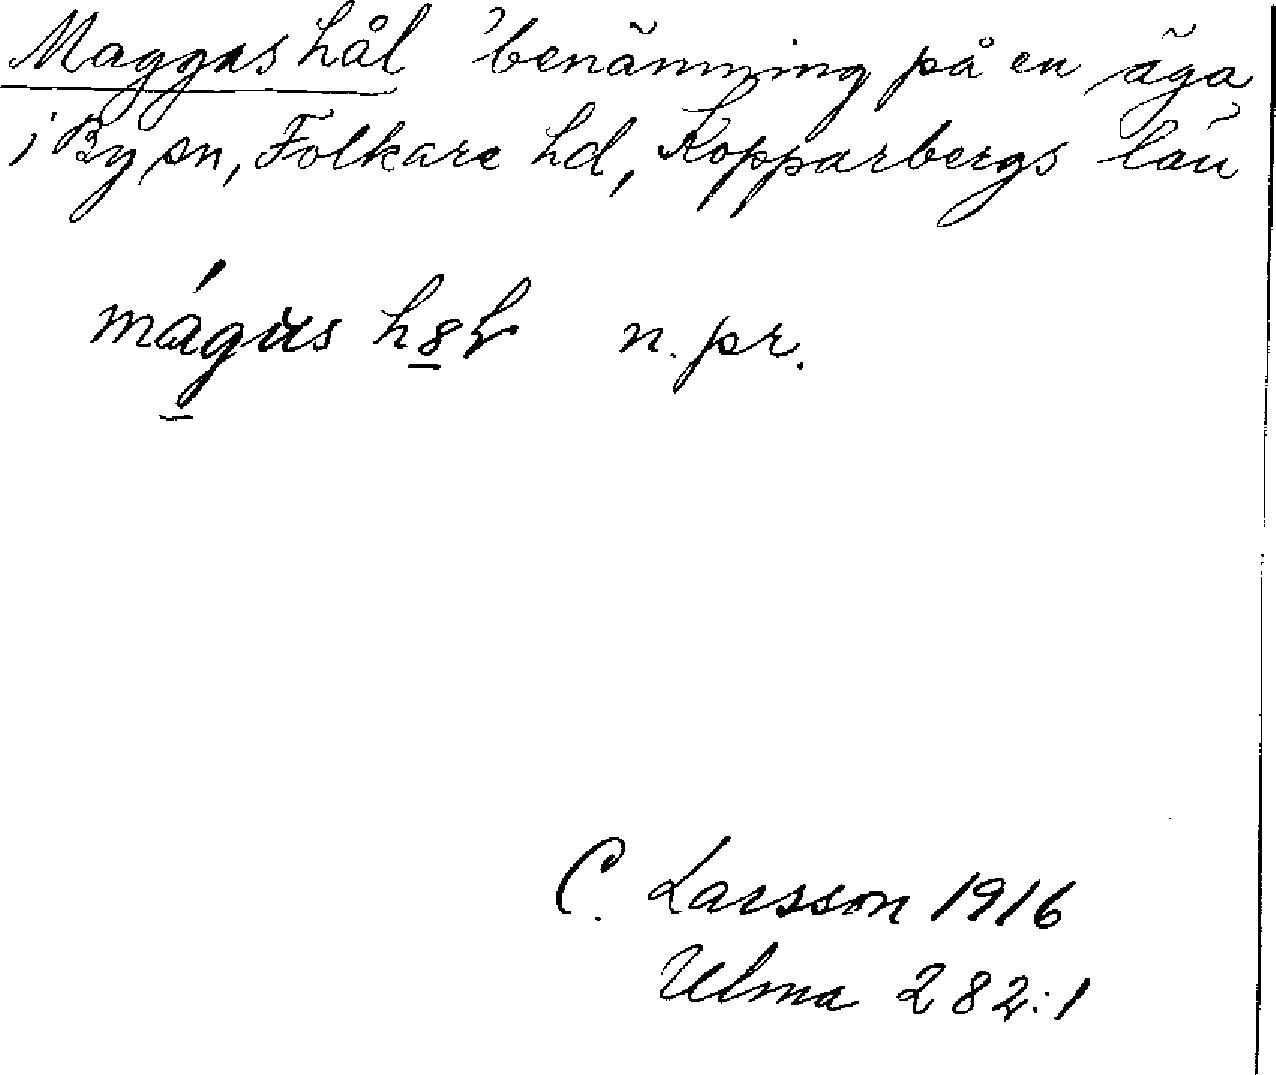 Maggas hål 'benämning på en äga
i By sn, Folkare hd, Kopparbergs län'
n. pr.
C. Larsson 1916
Ulma 282:1